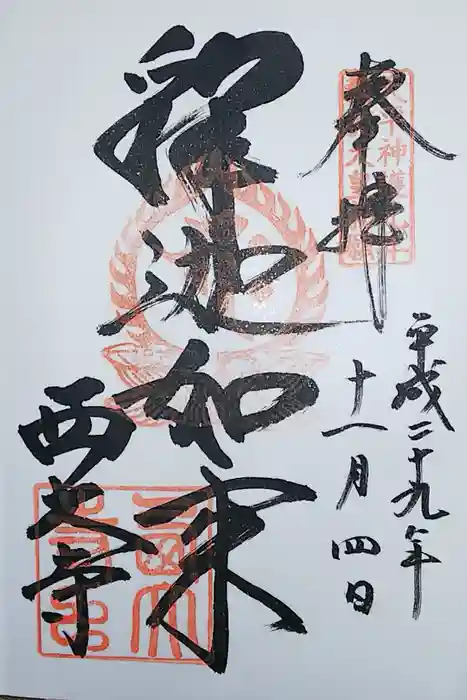 奉拝
平成二十九年
十一月四日
釋迦如来
西大寺